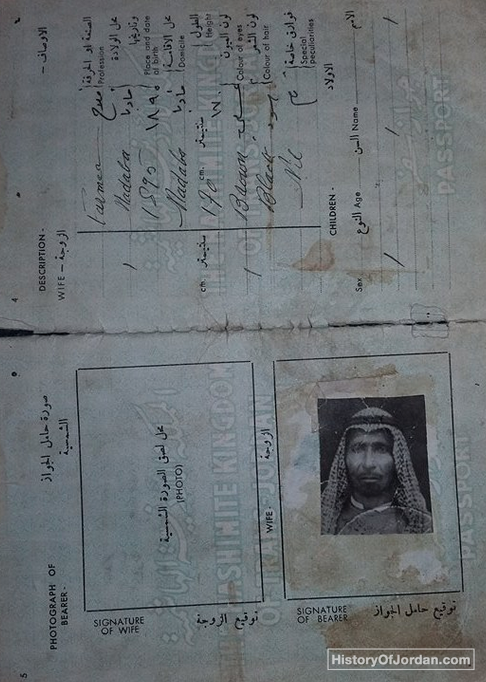 4
DESCRIPTION - الأوصاف -
WIFE - الزوجة -
Farmer فلاح الصنعة او الحرفة
Profession
Madaba مادبا محل الولادة
1895 ١٨٩٥ وتاريخها
Place and date of birth
Madaba مادبا محل الاقامة
Domicile
cm. سنتيمتر 170 cm. سنتيمتر ١٧٠ الطول
Height
Brown عسلي لون العيون
Colour of eyes
Black اسود لون الشعر
Colour of hair
Nil فوارق خاصة
Special peculiarities
CHILDREN - الاولاد
Sex النوع Age السن Name الاسم
THE HASHIMITE KINGDOM
OF TRANS-JORDAN
PASSPORT
5
PHOTOGRAPH OF BEARER -
صورة حامل الجواز الشمسية
محل لصق الصورة الشمسية
(PHOTO)
SIGNATURE OF WIFE توقيع الزوجة
WIFE - الزوجة
SIGNATURE OF BEARER توقيع حامل الجواز
HASHIMITE KINGDOM
OF TRANS-JORDAN
PASSPORT
HistoryOfJordan.com